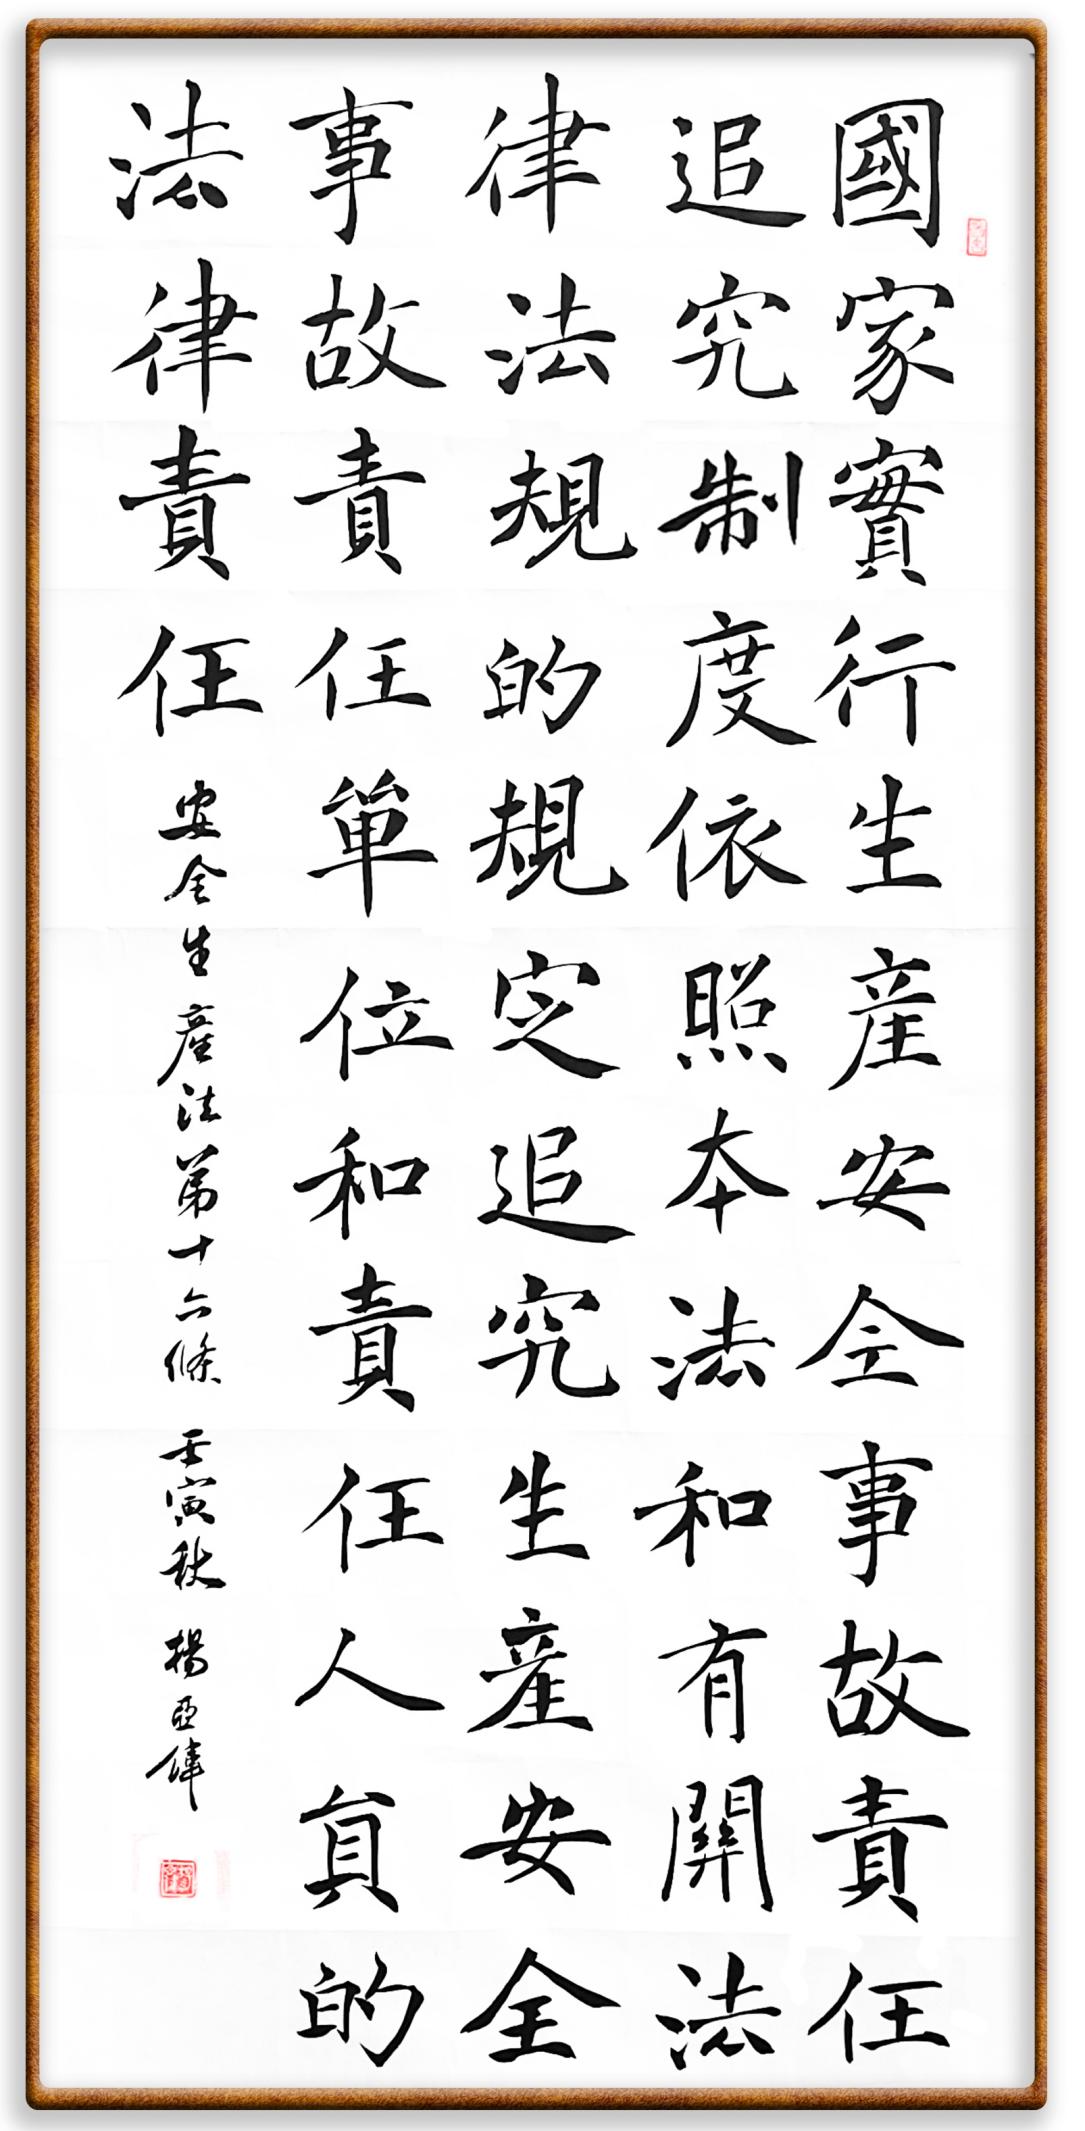 國家實行生産安全事故責任
追究制度依照本法和有關法
律法規的規定追究生産安全
事故責任單位和責任人員的
法律責任
安全生産法第十六條 壬寅秋 楊亞偉